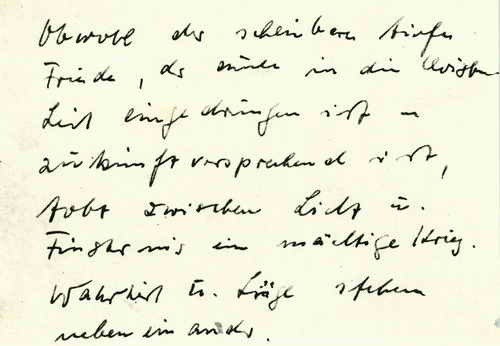 Obwohl der scheinbare tiefe
Friede, der in die
Zeit eingedrungen ist u
zukunftversprechend ist,
tobt zwischen Licht u.
Finsternis ein mächtige Krieg.
Wahrheit u. Lüge stehen
nebeneinander.